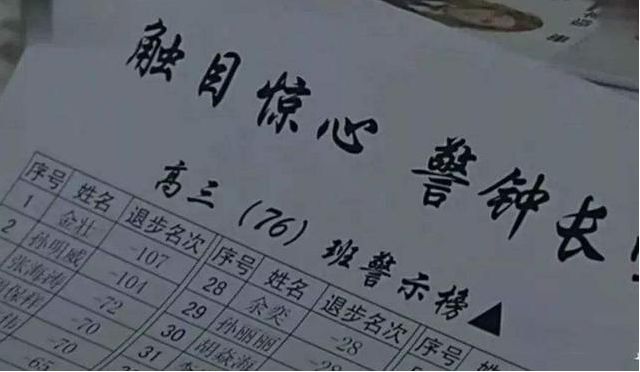 触目惊心 警钟长
高三（76）班警示榜▲
序号 姓名 退步名次 序号 姓名 退步名次 序号 姓名
1 金壮 -107 28 余奕 -28
2 孙明威 -104 29 孙丽丽 -28
张海涛 -72 30 胡焱海
-70 31
伟 -70
-65